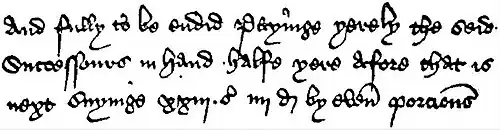 And fully to be endid Payinge yerely the seid
Successours in hand halfe yere afore that is
next suyinge xxiij s iiij d by even porcions